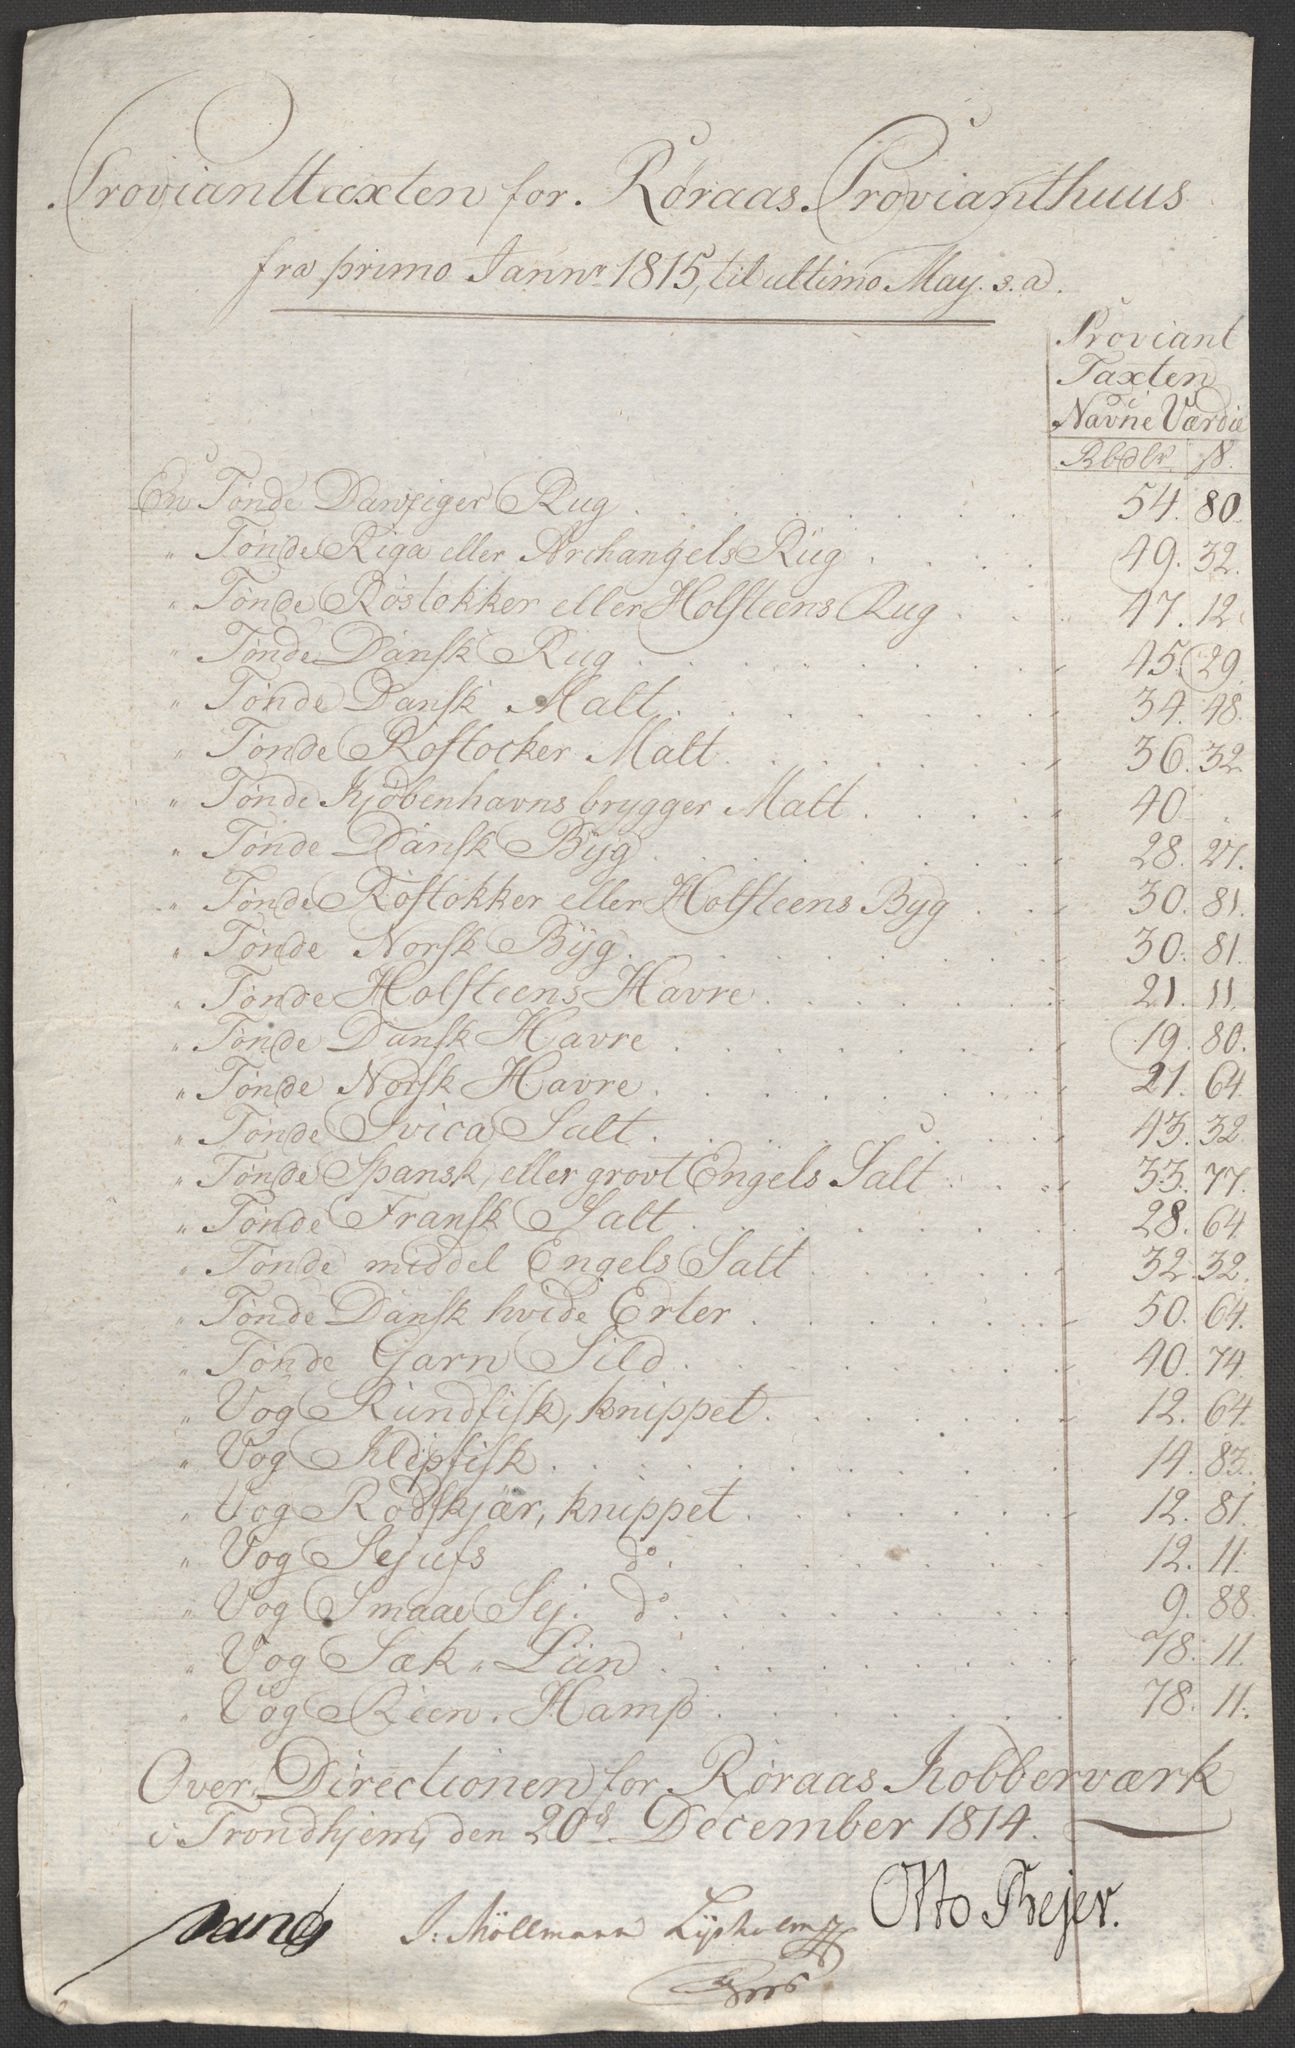 Provianttaxten for Røraas Provianthuus
fra primo Jannr 1815, til ultimo May. s. a.
Proviant
Taxten
i
Navne Værdie
Rbdlr. ß.
En Tønde Danziger Rug . . . 54. 80.
" Tønde Riga eller Archangels Rug . . . 49. 32.
" Tønde Rostokker eller Holsteens Rug . . . 47. 12.
" Tønde Dansk Rug . . . 45. 29.
" Tønde Dansk Malt . . . 34. 48.
" Tønde Rostocker Malt . . . 36. 32.
" Tønde Kjøbenhavns brygger Malt . . . 40. .
" Tønde Dansk Byg . . . 28. 27.
" Tønde Rostokker eller Holsteens Byg . . . 30. 81.
" Tønde Norsk Byg . . . 30. 81.
" Tønde Holsteens Havre . . . 21. 11.
" Tønde Dansk Havre . . . 19. 80.
" Tønde Norsk Havre . . . 21. 64.
" Tønde Ivica Salt . . . 43. 32.
" Tønde Spansk, eller grovt Engels Salt . . . 33. 77.
" Tønde Fransk Salt . . . 28. 64.
" Tønde middel Engels Salt . . . 32. 32.
" Tønde Dansk hvide Erter . . . 50. 64.
" Tønde Garn Sild . . . 40. 74.
" Vog Rundfisk, knippet . . . 12. 64.
" Vog Klipfisk . . . 14. 83.
" Vog Rodskjär, knippet . . . 12. 81.
" Vog Sejufs do . . . 12. 11.
" Vog Smaae Sej. do . . . 9. 88.
" Vog Sæk, Liin . . . 78. 11.
" Vog Reen, Hamp . . . 78. 11.
Over, Directionen for Røraas Kobberværk
i Trondhjem, den 20de December 1814.
J: Möllmann Lysholm Otto Thejer.